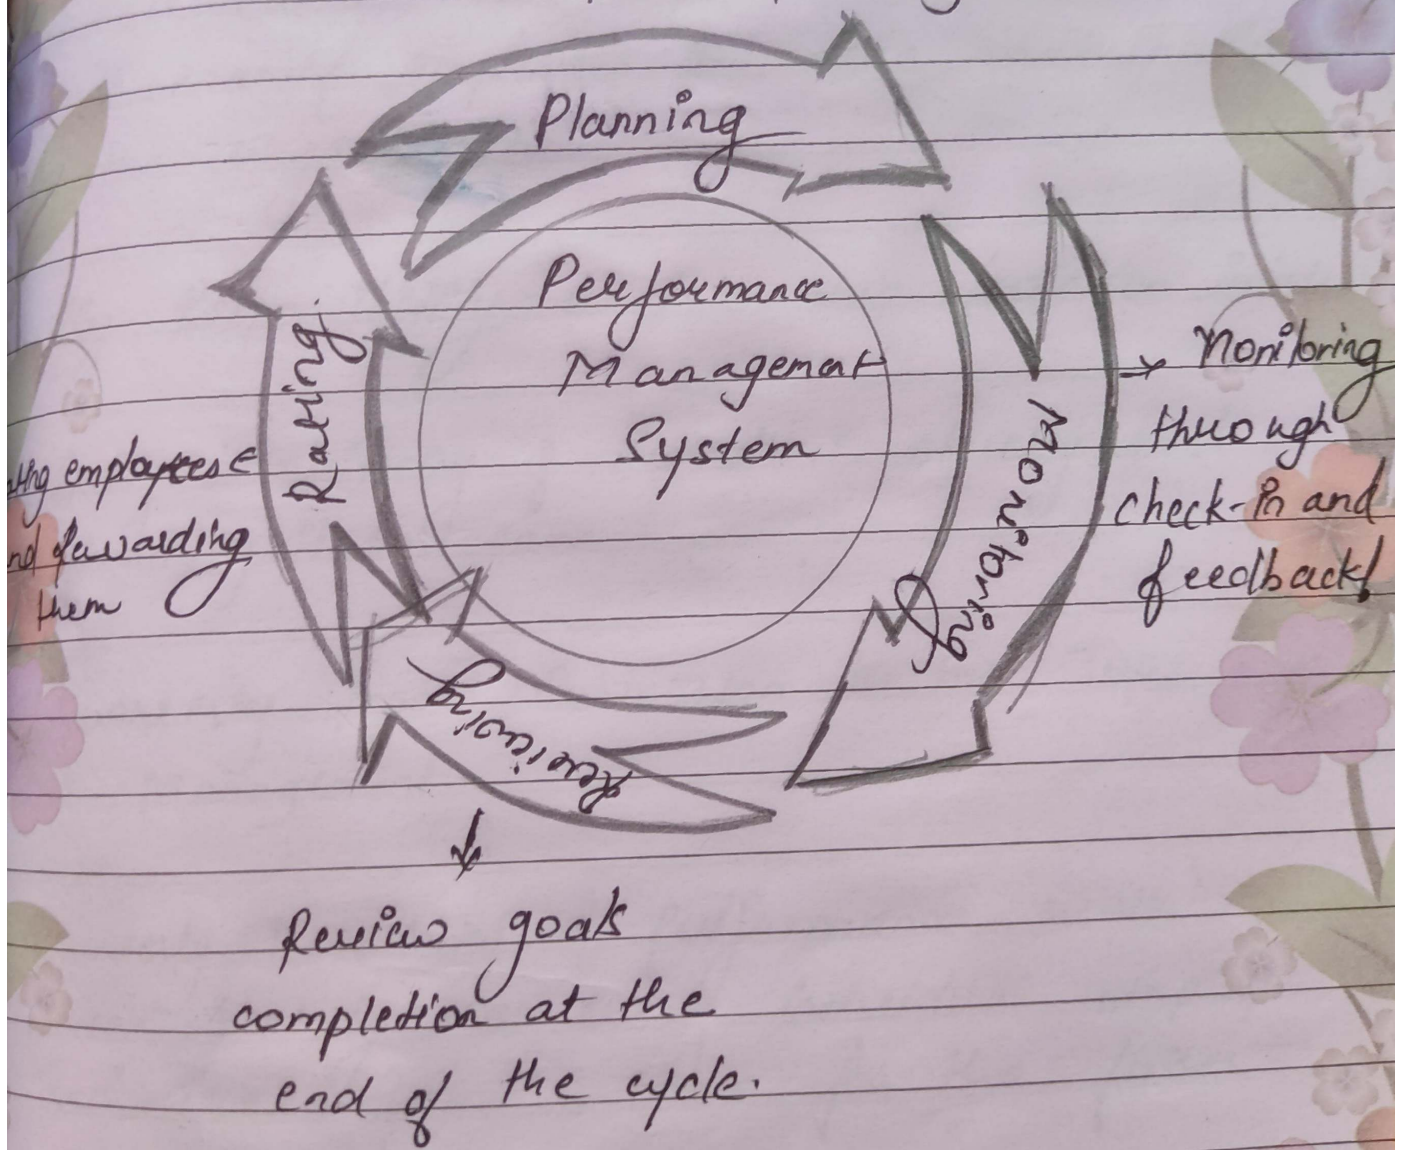 Planning
Performance
Management
System
Monitoring
Monitoring
through
check-in and
feedback
Rating
employees
rewarding
them
Reviewing
Review goals
completion at the
end of the cycle.